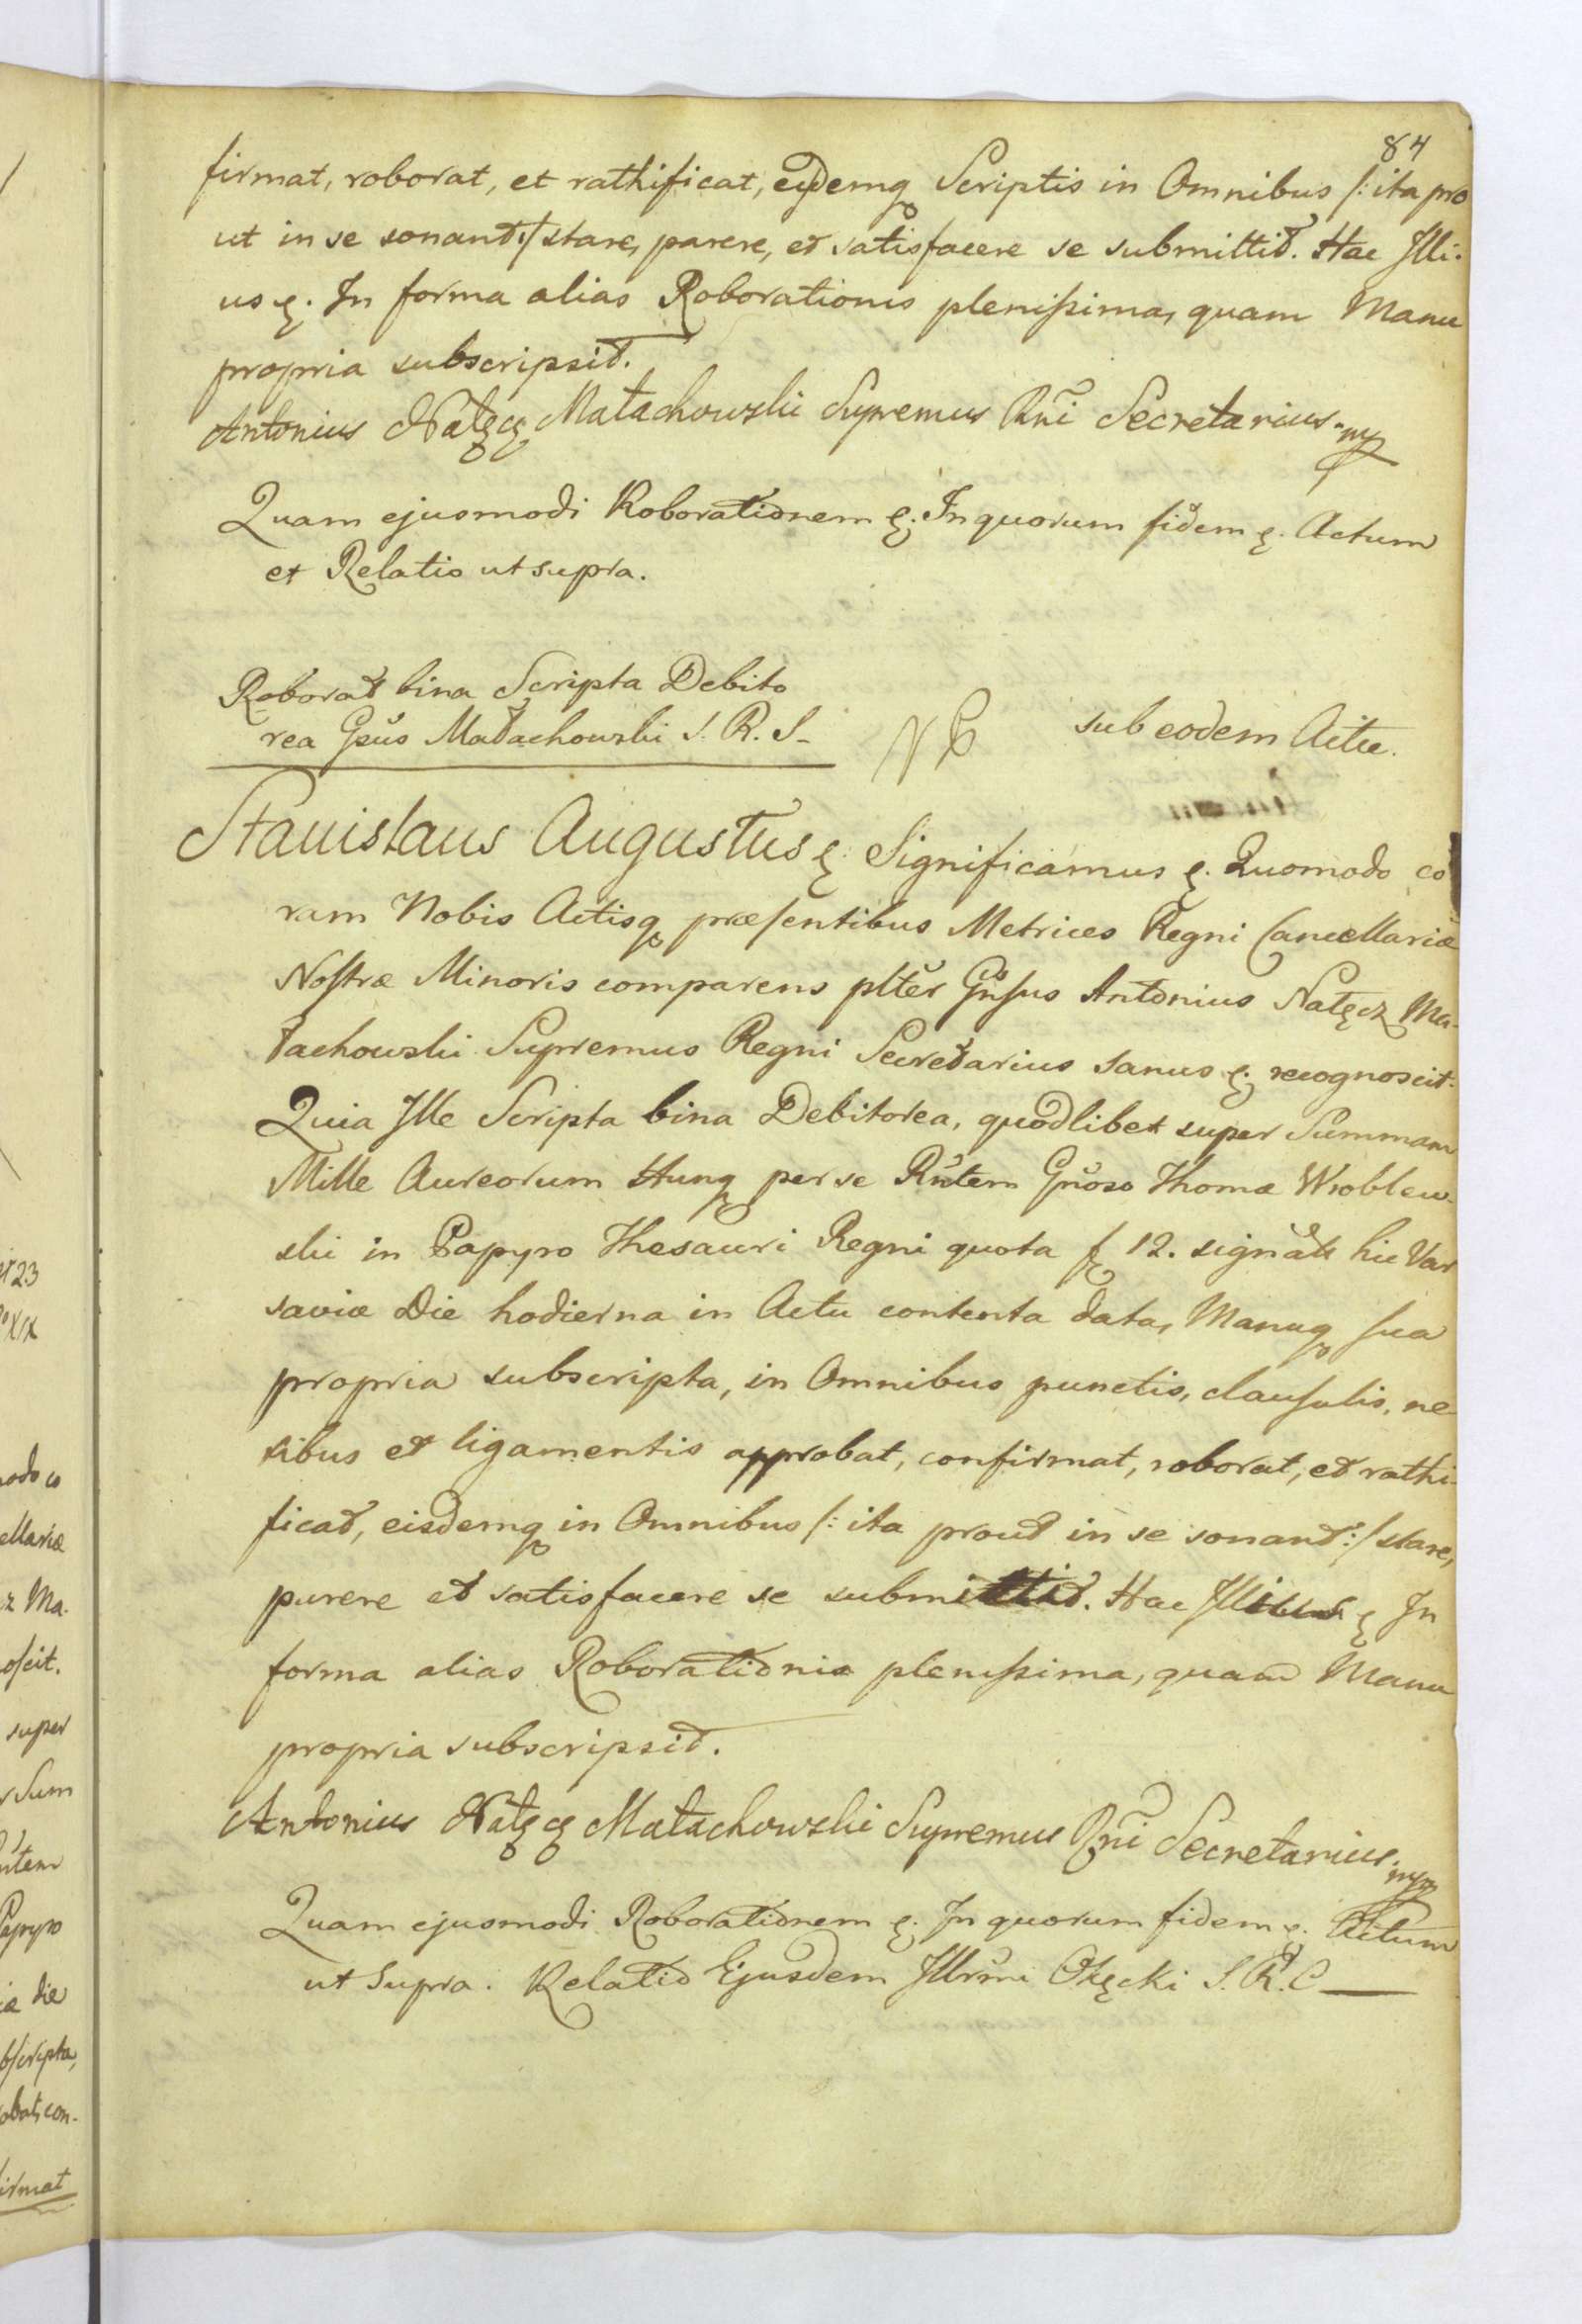 84
firmat, roborat, et rathificat, eisdemq Scriptis in Omnibus /: ita pro
ut in se sonant :/ stare, parere, et satisfacere se submittit. Hac Illi-
us etc. In forma alias Roborationis plenissima, quam Manu
propria subscripsit.
Antonius Nałęcz Małachowski Supremus Rni Secretarius. mp
Quam ejusmodi Roborationem etc. In quorum fidem etc. Actum
et Relatio ut supra.
Roborat bina Scripta Debito
rea Gsus Małachowski S. R. S.
sub eodem Actu.
Stanislaus Augustus etc. Significamus etc. Quomodo co
ram Nobis Actisq præsentibus Metrices Regni Cancellariæ
Nostræ Minoris comparens plter Gnsus Antonius Nałęcz Ma-
łachowski Supremus Regni Secretarius sanus etc. recognoscit.
Quia Ille Scripta bina Debitorea, quodlibet super Summam
Mille Aureorum Hung per se Rntem Gnoso Thomæ Wroblew-
ski in Papyro Thesauri Regni quota f 12. signat hic Var
saviæ Die hodierna in Actu contenta data, Manuq sua
propria subscripta, in Omnibus punctis, clausulis, ne
xibus et ligamentis approbat, confirmat, roborat, et rathi-
ficat, eisdemq in Omnibus /: ita prout in se sonant :/ stare,
parere et satisfacere se submittit. Hac Illius etc. In
forma alias Roborationis plenissima, quam Manu
propria subscripsit.
Antonius Nałęcz Małachowski Supremus Rni Secretarius. mp
Quam ejusmodi Roborationem etc. In quorum fidem etc. Actum
ut Supra. Relatio Ejusdem Illrmi Okęcki S. R. C